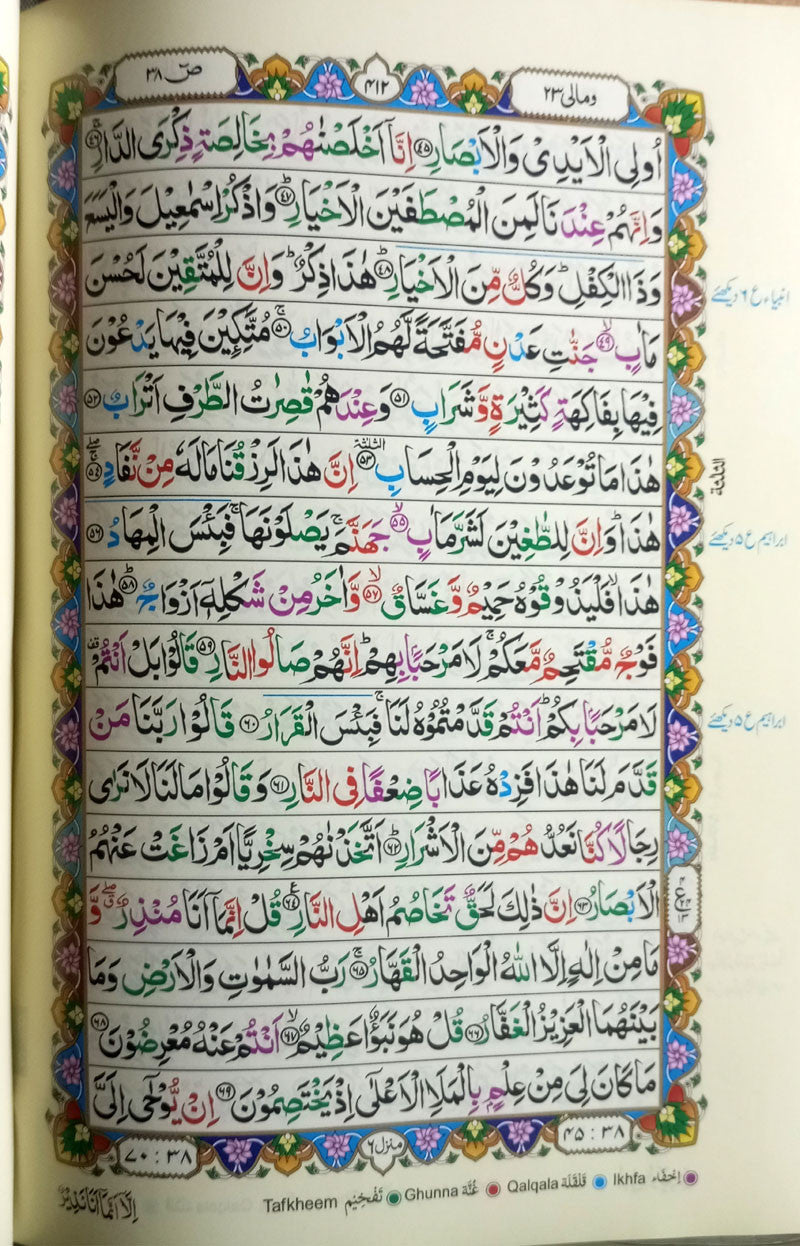 صٓ ٣٨
٤١٢
ومالی ٢٣
اُولِی الْاَیْدِیْ وَالْاَبْصَارِ ﴿٤٥﴾ اِنَّاۤ اَخْلَصْنٰهُمْ بِخَالِصَةٍ ذِكْرَی الدَّارِ ﴿٤٦﴾ۚ
وَاِنَّهُمْ عِنْدَنَا لَمِنَ الْمُصْطَفَیْنَ الْاَخْیَارِ ﴿٤٧﴾ؕ وَاذْكُرْ اِسْمٰعِیْلَ وَالْیَسَعَ
وَذَا الْكِفْلِ ؕ وَكُلٌّ مِّنَ الْاَخْیَارِ ﴿٤٨﴾ؕ هٰذَا ذِكْرٌ ؕ وَاِنَّ لِلْمُتَّقِیْنَ لَحُسْنَ
مَاٰبٍ ﴿٤٩﴾ۙ جَنّٰتِ عَدْنٍ مُّفَتَّحَةً لَّهُمُ الْاَبْوَابُ ﴿٥٠﴾ۚ مُتَّكِـِٕیْنَ فِیْهَا یَدْعُوْنَ
فِیْهَا بِفَاكِهَةٍ كَثِیْرَةٍ وَّشَرَابٍ ﴿٥١﴾ وَعِنْدَهُمْ قٰصِرٰتُ الطَّرْفِ اَتْرَابٌ ﴿٥٢﴾
هٰذَا مَا تُوْعَدُوْنَ لِیَوْمِ الْحِسَابِ ﴿٥٣﴾ الثلثة اِنَّ هٰذَا لَرِزْقُنَا مَا لَهٗ مِنْ نَّفَادٍ ﴿٥٤﴾ۚۖ
هٰذَا ؕ وَاِنَّ لِلطّٰغِیْنَ لَشَرَّ مَاٰبٍ ﴿٥٥﴾ۙ جَهَنَّمَ ۚ یَصْلَوْنَهَا ۚ فَبِئْسَ الْمِهَادُ ﴿٥٦﴾
هٰذَا ۙ فَلْیَذُوْقُوْهُ حَمِیْمٌ وَّغَسَّاقٌ ﴿٥٧﴾ۙ وَّاٰخَرُ مِنْ شَكْلِهٖۤ اَزْوَاجٌ ﴿٥٨﴾ؕ هٰذَا
فَوْجٌ مُّقْتَحِمٌ مَّعَكُمْ ۚ لَا مَرْحَبًۢا بِهِمْ ؕ اِنَّهُمْ صَالُوا النَّارِ ﴿٥٩﴾ قَالُوْا بَلْ اَنْتُمْ
لَا مَرْحَبًۢا بِكُمْ ؕ اَنْتُمْ قَدَّمْتُمُوْهُ لَنَا ۚ فَبِئْسَ الْقَرَارُ ﴿٦٠﴾ قَالُوْا رَبَّنَا مَنْ
قَدَّمَ لَنَا هٰذَا فَزِدْهُ عَذَابًا ضِعْفًا فِی النَّارِ ﴿٦١﴾ وَقَالُوْا مَا لَنَا لَا نَرٰی
رِجَالًا كُنَّا نَعُدُّهُمْ مِّنَ الْاَشْرَارِ ﴿٦٢﴾ؕ اَتَّخَذْنٰهُمْ سِخْرِیًّا اَمْ زَاغَتْ عَنْهُمُ
الْاَبْصَارُ ﴿٦٣﴾ اِنَّ ذٰلِكَ لَحَقٌّ تَخَاصُمُ اَهْلِ النَّارِ ﴿٦٤﴾ قُلْ اِنَّمَاۤ اَنَا مُنْذِرٌ ۖۗ وَّ
مَا مِنْ اِلٰهٍ اِلَّا اللّٰهُ الْوَاحِدُ الْقَهَّارُ ﴿٦٥﴾ۚ رَبُّ السَّمٰوٰتِ وَالْاَرْضِ وَمَا
بَیْنَهُمَا الْعَزِیْزُ الْغَفَّارُ ﴿٦٦﴾ قُلْ هُوَ نَبَؤٌا عَظِیْمٌ ﴿٦٧﴾ۙ اَنْتُمْ عَنْهُ مُعْرِضُوْنَ ﴿٦٨﴾
مَا كَانَ لِیَ مِنْ عِلْمٍۭ بِالْمَلَاِ الْاَعْلٰۤی اِذْ یَخْتَصِمُوْنَ ﴿٦٩﴾ اِنْ یُّوْحٰۤی اِلَیَّ
انبیاء ع ٦ دیکھئے
الثلثة
ابراہیم ع ٥ دیکھئے
ابراہیم ع ٥ دیکھئے
٤٥ : ٣٨
منزل ٦
٧٠ : ٣٨
اِلَّاۤ اَنَّمَاۤ اَنَا نَذِیْرٌ
اِخْفَاء Ikhfa قَلْقَلَة Qalqala غُنَّة Ghunna تَفْخِیْم Tafkheem